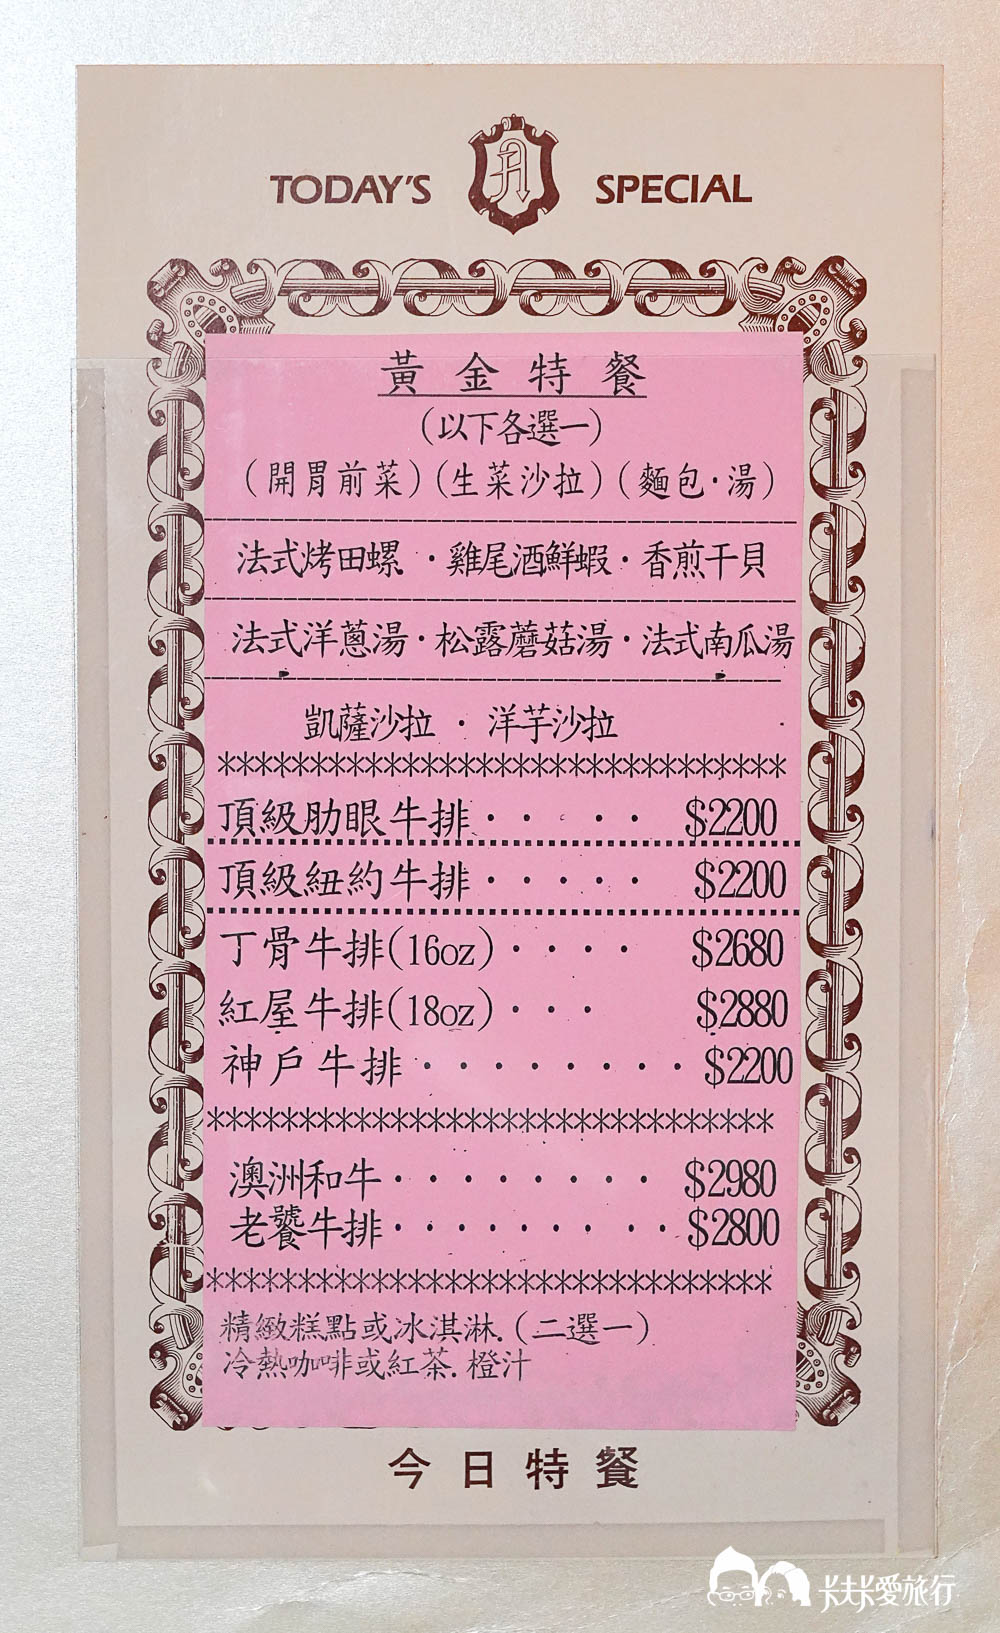 TODAY'S A SPECIAL
黃金特餐
(以下各選一)
(開胃前菜)(生菜沙拉)(麵包·湯)
法式烤田螺·雞尾酒鮮蝦·香煎干貝
法式洋蔥湯·松露蘑菇湯·法式南瓜湯
凱薩沙拉·洋芋沙拉
*******************************
頂級肋眼牛排····· $2200
頂級紐約牛排····· $2200
丁骨牛排(16oz)···· $2680
紅屋牛排(18oz)··· $2880
神戶牛排········· $2200
*******************************
澳洲和牛········ $2980
老饕牛排········· $2800
*******************************
精緻糕點或冰淇淋.(二選一)
冷熱咖啡或紅茶.橙汁
今日特餐
卡夫卡愛旅行